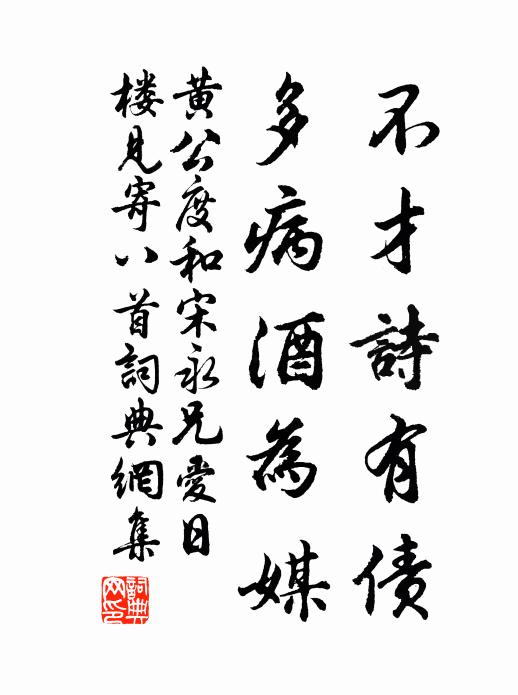 不才詩有債
多病酒為媒
黄公度和宋永兄愛日
楼見寄八首詞典網集
詞典网印